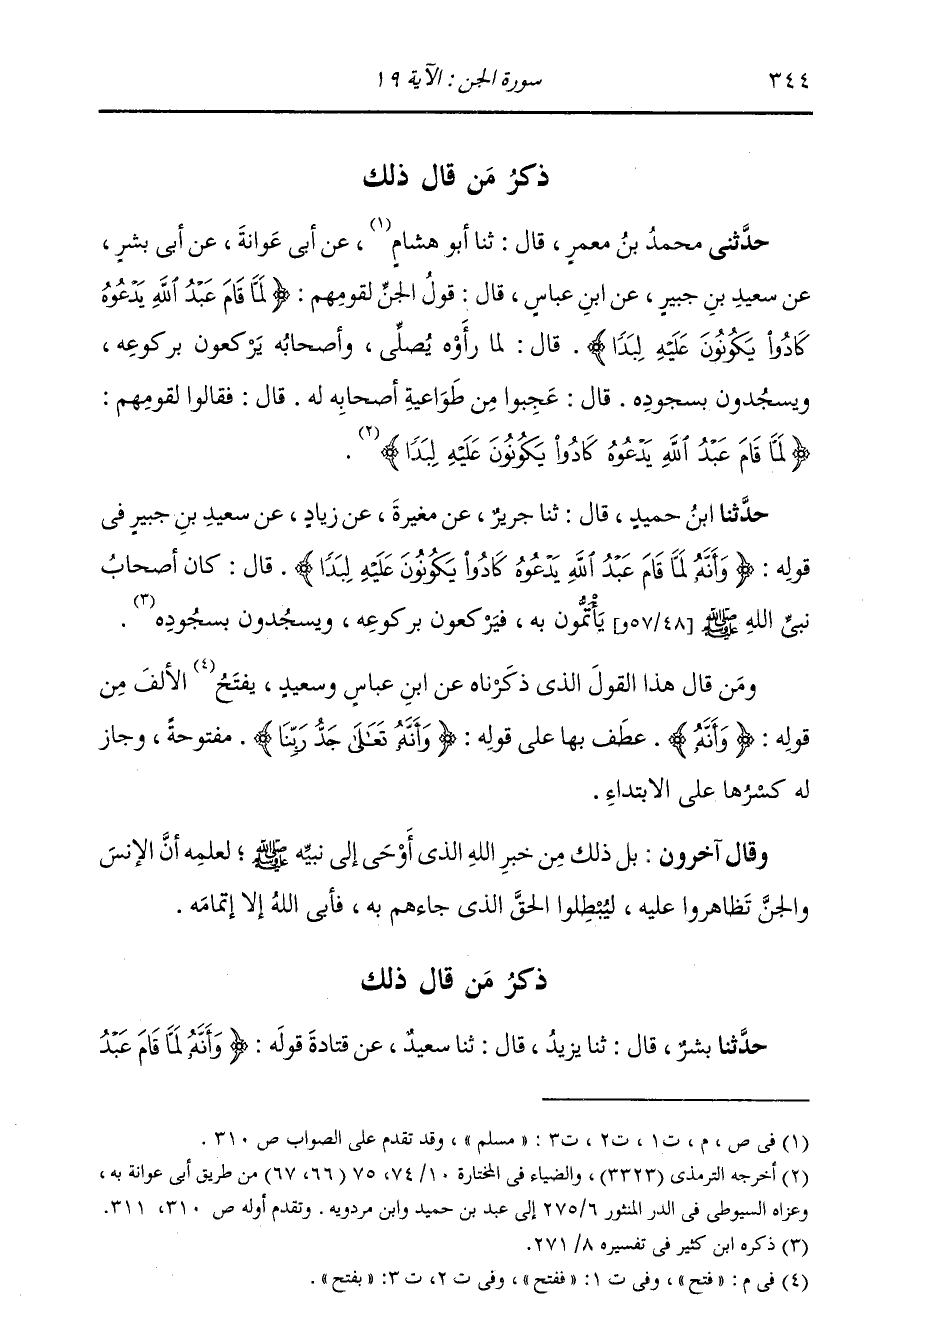 ٣٤٤ سورة الجن : الآية ١٩
ذكرُ مَن قال ذلك
حدَّثنى محمدُ بنُ معمرٍ ، قال : ثنا أبو هشامٍ(١) ، عن أبى عَوانةَ ، عن أبى بشرٍ ،
عن سعيدِ بنِ جبيرٍ ، عن ابنِ عباسٍ ، قال : قولُ الجنِّ لقومِهم : ﴿ لَمَّا قَامَ عَبْدُ ٱللَّهِ يَدْعُوهُ
كَادُوا۟ يَكُونُونَ عَلَيْهِ لِبَدًا ﴾ . قال : لما رأَوْه يُصلِّى ، وأصحابُه يَرْكعون بركوعِه ،
ويسجُدون بسجودِه . قال : عَجِبوا مِن طَوَاعيةِ أصحابِه له . قال : فقالوا لقومِهم :
﴿ لَمَّا قَامَ عَبْدُ ٱللَّهِ يَدْعُوهُ كَادُوا۟ يَكُونُونَ عَلَيْهِ لِبَدًا ﴾(٢) .
حدَّثنا ابنُ حميدٍ ، قال : ثنا جريرٌ ، عن مغيرةَ ، عن زيادٍ ، عن سعيدِ بنِ جبيرٍ فى
قولِه : ﴿ وَأَنَّهُۥ لَمَّا قَامَ عَبْدُ ٱللَّهِ يَدْعُوهُ كَادُوا۟ يَكُونُونَ عَلَيْهِ لِبَدًا ﴾ . قال : كان أصحابُ
نبىِّ اللهِ ﷺ [٥٧/٤٨و] يَأْتَمُّون به ، فيَرْكعون بركوعِه ، ويسجُدون بسجُودِه(٣) .
ومَن قال هذا القولَ الذى ذكَرْناه عن ابنِ عباسٍ وسعيدٍ ، يفتَحُ(٤) الألفَ مِن
قولِه : ﴿ وَأَنَّهُۥ ﴾ . عطَف بها على قولِه : ﴿ وَأَنَّهُۥ تَعَـٰلَىٰ جَدُّ رَبِّنَا ﴾ . مفتوحةً ، وجاز
له كسْرُها على الابتداءِ .
وقال آخرون : بل ذلك مِن خبرِ اللهِ الذى أَوْحَى إلى نبيِّه ﷺ ؛ لعلمِه أنَّ الإنسَ
والجنَّ تَظاهروا عليه ، ليُبْطِلوا الحقَّ الذى جاءهم به ، فأبى اللهُ إلا إتمامَه .
ذكرُ مَن قال ذلك
حدَّثنا بشرٌ ، قال : ثنا يزيدُ ، قال : ثنا سعيدٌ ، عن قتادةَ قولَه : ﴿ وَأَنَّهُۥ لَمَّا قَامَ عَبْدُ
(١) فى ص ، م ، ت١ ، ت٢ ، ت٣ : « مسلم » ، وقد تقدم على الصواب ص ٣١٠ .
(٢) أخرجه الترمذى (٣٣٢٣) ، والضياء فى المختارة ١٠/ ٧٤، ٧٥ (٦٦، ٦٧) من طريق أبى عوانة به ،
وعزاه السيوطى فى الدر المنثور ٢٧٥/٦ إلى عبد بن حميد وابن مردويه . وتقدم أوله ص ٣١٠، ٣١١.
(٣) ذكره ابن كثير فى تفسيره ٨/ ٢٧١.
(٤) فى م : « فتح » ، وفى ت ١: « ففتح » ، وفى ت ٢، ت ٣: « بفتح » .